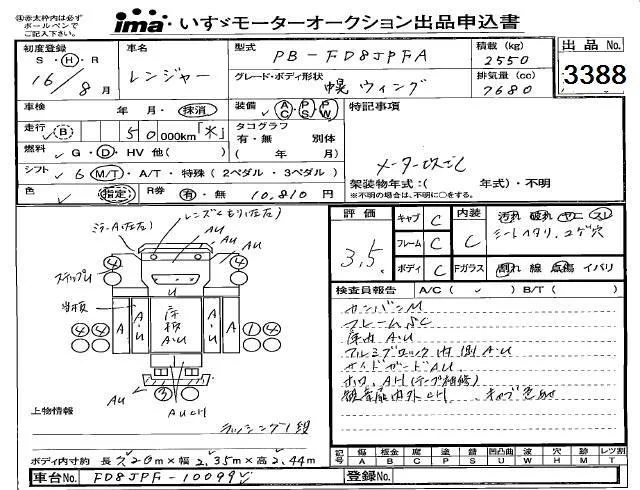 ㊟赤太枠内は必ず
ボールペンで
ご記入下さい。
ima いすゞモーターオークション出品申込書
初度登録
S・H・R
16/8月
車名
レンジャー
型式
PB-FD8JPFA
グレード・ボディ形状
幌ウィング
積載(kg)
2550
排気量(cc)
7680
出品No.
3388
車検
年・月・抹消
装備
AC・PS・PW
特記事項
走行
B 50 000km「水」
タコグラフ
有・無 別体
( 年 月)
燃料
G・D・HV 他( )
シフト
6 M/T・A/T・特殊(2ペダル・3ペダル)
メーター改ざし
架装物年式:( 年式)・不明
※不明の場合は、不明に○をする。
色
指定
R券
有・無 10,810 円
評価
3.5
キャブ C
フレーム C
ボディ C
内装
C
Fガラス
汚れ 破れ ヤニ スレ
シートヘタリ、コゲ穴
割れ 線 点傷 イバリ
検査員報告 A/C( ) B/T( )
カンバンM
フレームSC
床内AU
アルミブロック内側AU
サイドガードAU
ホロ、AH(テープ補修)
観音扉内外CH キャブ色助
ミラーA(左右)
レンズくもり(左右)
AU
AU
AU
U
スイップU
当板
④ ④
A A・U
床板
A・U
A・U A
④ ④ ① ④
③
AU
AUCH
上物情報
ラッシング1段
記号
傷 A
板金 B
腐 C
塗 P
錆 S
凹凸曲 U
波 W
穴 H
跡 M
レツ割 T
ボディ内寸約 長7.20m×幅2.35m×高2.44m
車台No.
FD8JPF-10099
登録No.